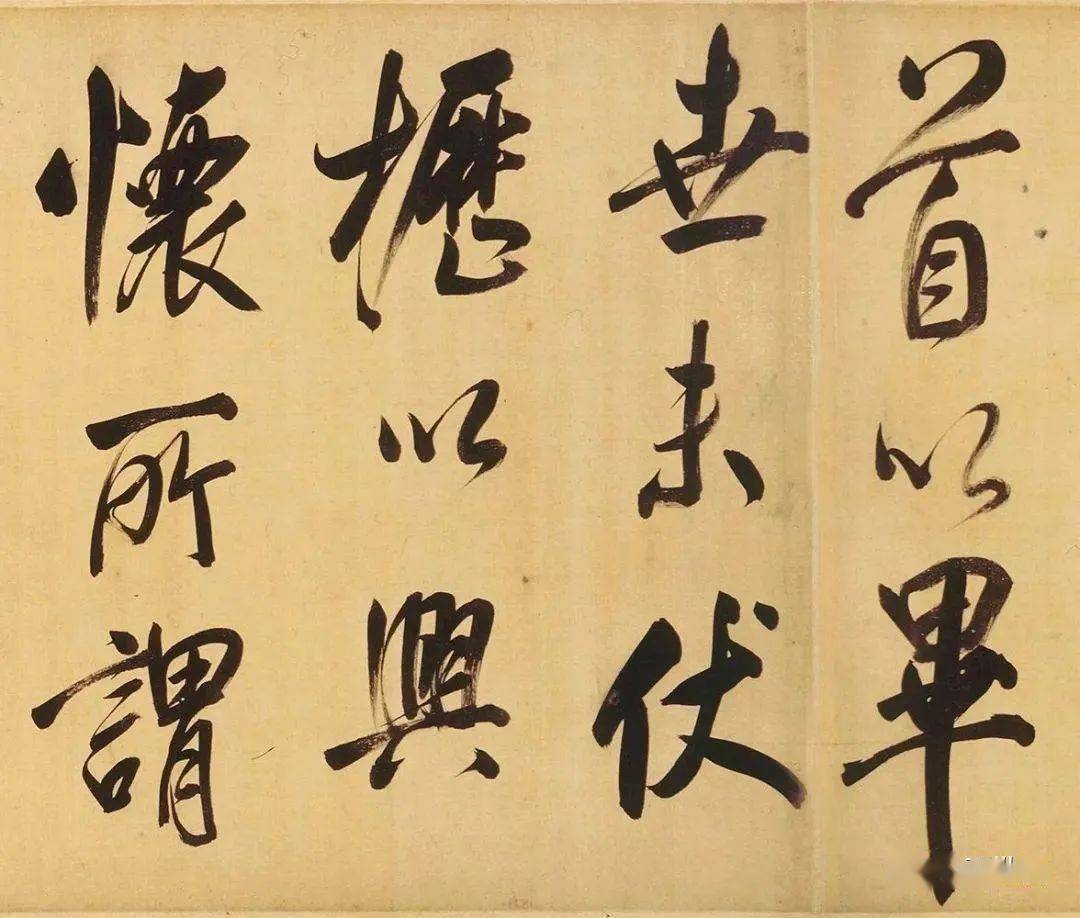 首以畢
世未伏
櫪以興
懷所謂